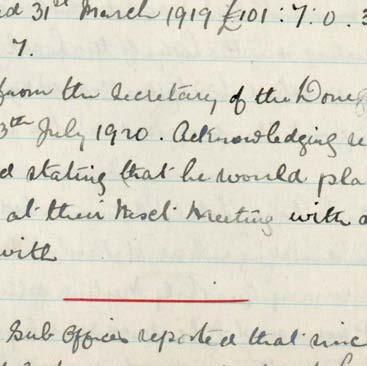 d 31st March 1919 £101:7:0. 3
7.
from the Secretary of the Doneg
3th July 1920. Acknowledging re
d stating that he would pla
at their Next Meeting with a
with
Sub Offices reported that sinc